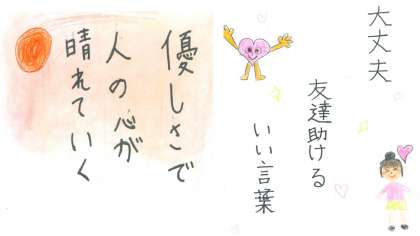 大丈夫
友達助ける
いい言葉
優しさで
人の心が
晴れていく